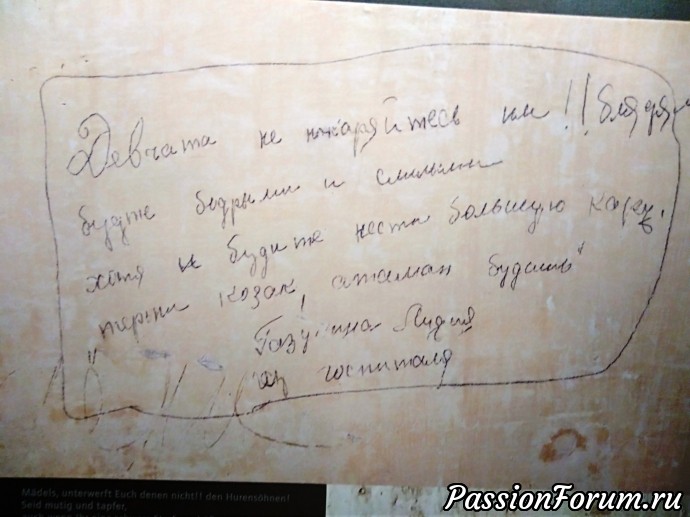 Девчата не покаряйтесь им!! блядям
будте бодрыми и смилыми
хотя не будите нести большую кару,
"терпи козак, атаман будишь"
Газутина Лидия
из госпиталя
Mädels, unterwerft Euch denen nicht!! den Hurensöhnen!
Seid mutig und tapfer,
PassionForum.ru